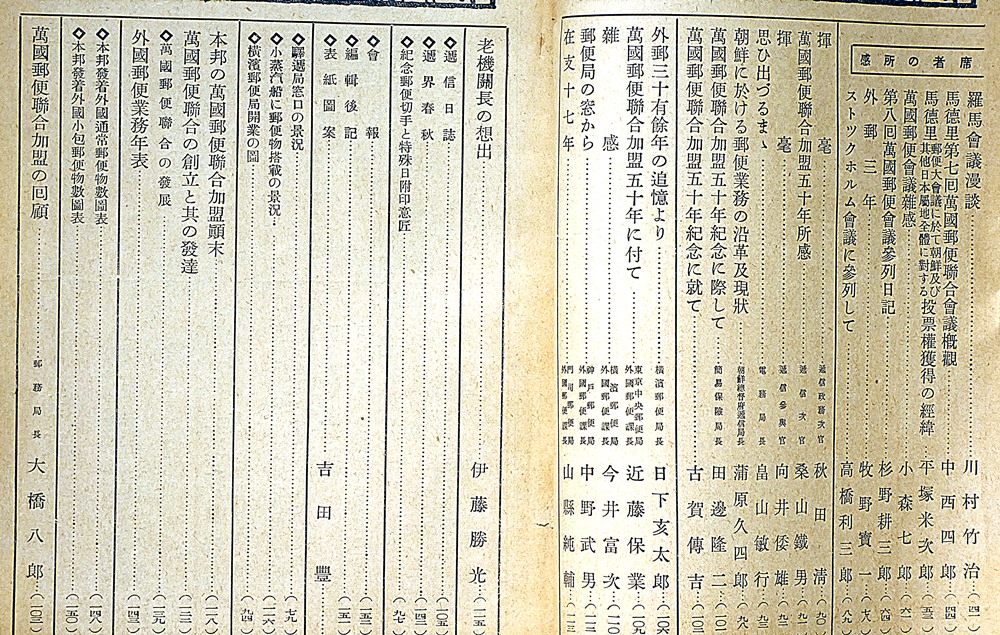 席者の所感
羅馬會議漫談 川村竹治
馬德里第七囘萬國郵便聯合會議槪觀 中西四郎
馬德里郵便大會議に於て朝鮮及び其他日本屬地全體に對する投票權獲得の經緯 平塚米次郎
萬國郵便會議雜感 小森七郎
第八囘萬國郵便會議參列日記 杉野耕三郎
外郵三年 牧野寶一
ストツクホルム會議に參列して 高橋利三郎
揮毫 遞信政務次官 秋田淸
萬國郵便聯合加盟五十年所感 遞信次官 桑山鐵男
揮毫 遞信參與官 向井倭雄
思ひ出づるまゝ 電務局長 畠山敏行
朝鮮に於ける郵便業務の沿革及現狀 朝鮮總督府遞信局長 蒲原久四郎
萬國郵便聯合加盟五十年紀念に際して 簡易保險局長 田邊隆二
萬國郵便聯合加盟五十年紀念に就て 古賀傳吉
外郵三十有餘年の追憶より 橫濱郵便局長 日下亥太郎
萬國郵便聯合加盟五十年に付て 東京中央郵便局外國郵便課長 近藤保業
雜感 橫濱郵便局外國郵便課長 今井富次
郵便局の窓から 神戶郵便局外國郵便課長 中野武男
在支十七年 門司郵便局外國郵便課長 山縣純輔
老機關長の想出 伊藤勝光
◆遞信日誌
◆遞界春秋
◆紀念郵便切手と特殊日附印意匠
◆會報
◆編輯後記
◆表紙圖案 吉田豐
◆驛遞局窓口の景況
◆小蒸汽船に郵便物搭載の景況
◆橫濱郵便局開業の圖
本邦の萬國郵便聯合加盟顚末
萬國郵便聯合の創立と其の發達
◆萬國郵便聯合の發展
外國郵便業務年表
◆本邦發着外國通常郵便物數圖表
◆本邦發着外國小包郵便物數圖表
萬國郵便聯合加盟の囘顧 郵務局長 大橋八郎